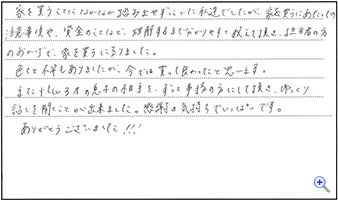 家を買うことになかなか踏み出せずにいた私達でしたが、家を買うにあたっての
注意事項や、資金のことなど、理解するまで分かりやすく教えて頂き、担当者の方
のおかげで、家を買うに至りました。
色々と不安もありましたが、今では買って良かったと思います。
また、もうじき3才の息子の相手を、ずっと事務の方にして頂き、ゆっくり
話しを聞くことが出来ました。感謝の気持ちでいっぱいです。
ありがとうございました!!!